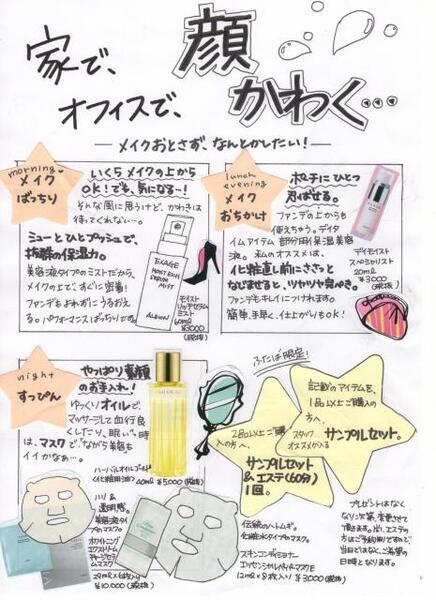 家で、
オフィスで、
顔
かわく…
メイクおとさず、なんとかしたい!
morning
メイク
ばっちり
いくらメイクの上から
OK!でも、気になる〜!
そんな風に思うけど、かわきは
待ってくれない…。
ミューとひとプッシュで、
抜群の保湿力。
美容液タイプのミストだから、
メイクの上で、すぐに密着!
ファンデもよれずにうるおえる。
パフォーマンスばっちりです。
EXAGE
MOIST RICH
SERUM
MIST
ALBION
モイスト
リッチセラム
ミスト
60ml
¥3000
(税抜)
lunch
evening
メイク
おちかけ
ポーチにひとつ
忍ばせる。
ファンデの上からも
使えちゃう。デイタ
イムアイテム 部分用保湿美容
液。私のオススメは、
化粧直し前にささっと
なじませると、ツヤツヤ完ぺき。
ファンデもキレイにつけれます。
簡単、手早く、仕上がりもOK!
デイモイスト
スペシャリスト
20ml
¥3000
(税抜)
night
すっぴん
やっぱり素顔
のお手入れ!
ゆっくりオイルで、
マッサージして血行良
くしたり、眠い〜時
は、マスクで"ながら美容も
イイかなぁ…。
ハーバルオイルゴールド
(化粧用油)
40ml ¥5000(税抜)
ハリ&
透明感。
美容液タイプ
のマスク。
ホワイトニング
エクストリーム
チャージセラ
ムマスク
¥10.000(税抜)
伝統のハトムギ。
化粧水タイプのマスク。
スキンコンディショナー
エッセンシャルペーパーマスクE
12ml×8枚入り ¥3000(税抜)
ふたば限定!
2品以上ご購
入の方へ、
サンプルセット
&エステ(60分)
1回。
記載のアイテムを、
1品以上ご購入の
方へ、
スタッフ
オススメが入る
サンプルセット。
プレゼントはなく
なり次第、変更させて
頂きます。又、エステの
方はご予約制ですので、
当日ではなく、ご希望の
日時となります。